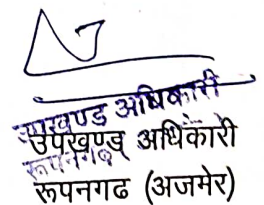 उपखण्ड अधिकारी
रूपनगढ
उपखण्ड अधिकारी
रूपनगढ (अजमेर)